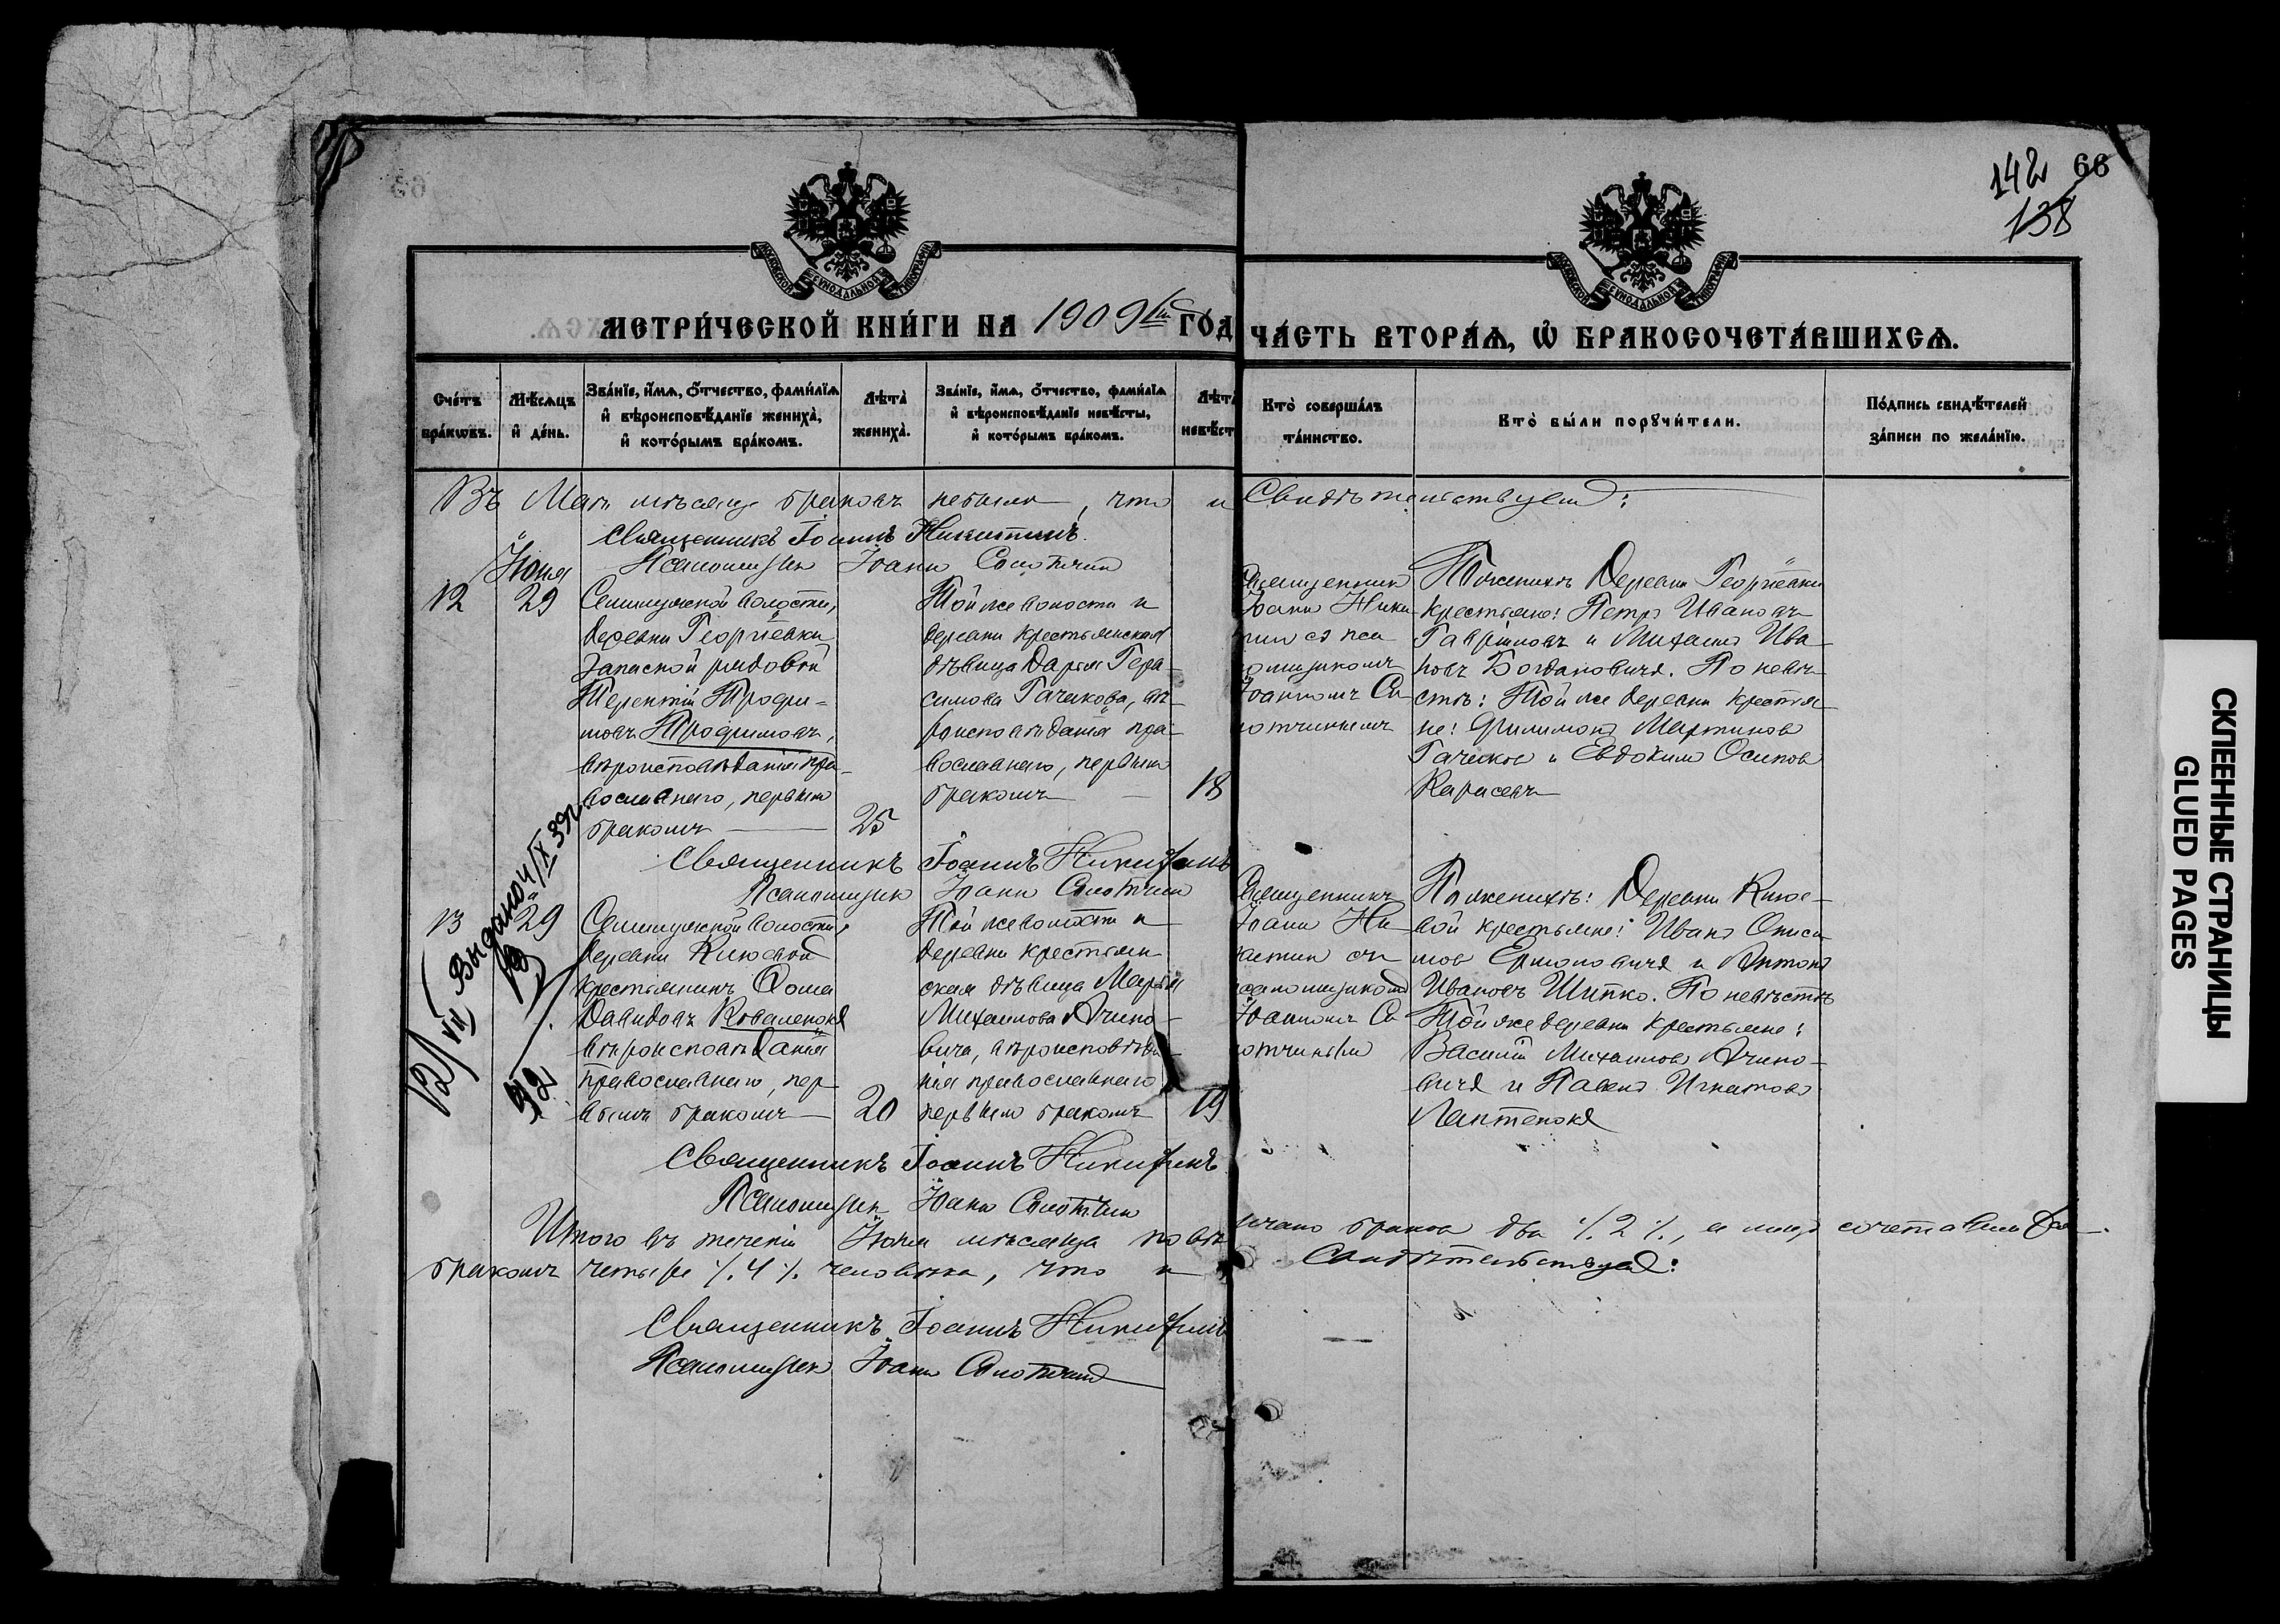 142 66
138
МЕТРИ́ЧЕСКОЙ КНИ́ГИ НА 1909 ГОД
ЧА́СТЬ ВТОРА́Я, Ѡ БРАКОСОЧЕТА́ВШИХСЯ.
Сче́тъ бра́кωвъ.
Мѣ́сяцъ и де́нь.
Зва́нїе, и́мя, ѻ́тчество, фами́лїя и вѣроисповѣ́данїе жениха̀, и кото́рымъ бра́комъ.
Лѣта̀ жениха̀.
Зва́нїе, и́мя, ѻ́тчество, фами́лїя и вѣроисповѣ́данїе невѣ́сты, и кото́рымъ бра́комъ.
Лѣта невѣст
Кто̀ соверша́лъ та́инство.
Кто̀ бы́ли порꙋчи́тели.
По́дпись свидѣ́телей за́писи по жела́нїю.
Въ Маѣ мѣсяцѣ браковъ небыло, что и Свидѣтельствуемъ:
Священникъ Іоаннъ Никитинъ
Псаломщик Іоанн
Іюня
12
29
Семилужской волости,
деревни Георгіевки
Запасной рядовой
Терентій Трофи-
мовъ Трофимовъ,
вѣроисповѣданія пра-
вославнаго, первымъ
бракомъ
25
Той же волости и
деревни крестьянская
дѣвица Дарья Гера-
симова Гачекова, вѣ-
роисповѣданія пра-
вославнаго, первымъ
бракомъ
18
Священник
Іоанн Ники
тин съ пса
ломщикомъ
Іоанномъ
По женихѣ Деревни Георгіевки
крестьяне: Петръ Ивановъ
Гавриловъ и Михаилъ Ива-
новъ Богдановичъ. По невѣ-
стѣ: Той же деревни крестья-
не: Филимонъ Мартинов
и Евдоким Осипов
Карасевъ
Священникъ Іоаннъ Никитинъ
Псаломщик Іоанн
13
29
Семилужской волости,
деревни Киевой
крестьянинъ Фома
Давидовъ Коваленокъ
вѣроисповѣданія
православнаго, пер-
вымъ бракомъ
20
Той же волости и
деревни крестьян-
ская дѣвица Марья
Михаилова Ачино-
вичъ, вѣроисповѣда-
нія православнаго
первымъ бракомъ
19
Выдано 4/IX 39
12/VII
Священникъ
Іоанн Ни-
китин съ
псаломщикомъ
Іоанномъ
По женихѣ: Деревни Кіев-
вой крестьяне: Иванъ
Ермоловичъ и Антонъ
Ивановъ Шипко. По невѣстѣ
Той же деревни крестьяне:
Василій Михаиловъ Ачино-
вичъ и Павелъ Игнатовъ
Лаптенокъ
Священникъ Іоаннъ Никитинъ
Псаломщик Іоанн
Итого въ теченіи Іюня мѣсяца повѣнчано браков два ·/. 2 ·/., а лицъ сочетавшихся
бракомъ четыре ·/. 4 ·/. человѣка, что и Свидѣтельствуемъ:
Священникъ Іоаннъ Никитинъ
Псаломщик Іоанн
СКЛЕЕННЫЕ СТРАНИЦЫ
GLUED PAGES